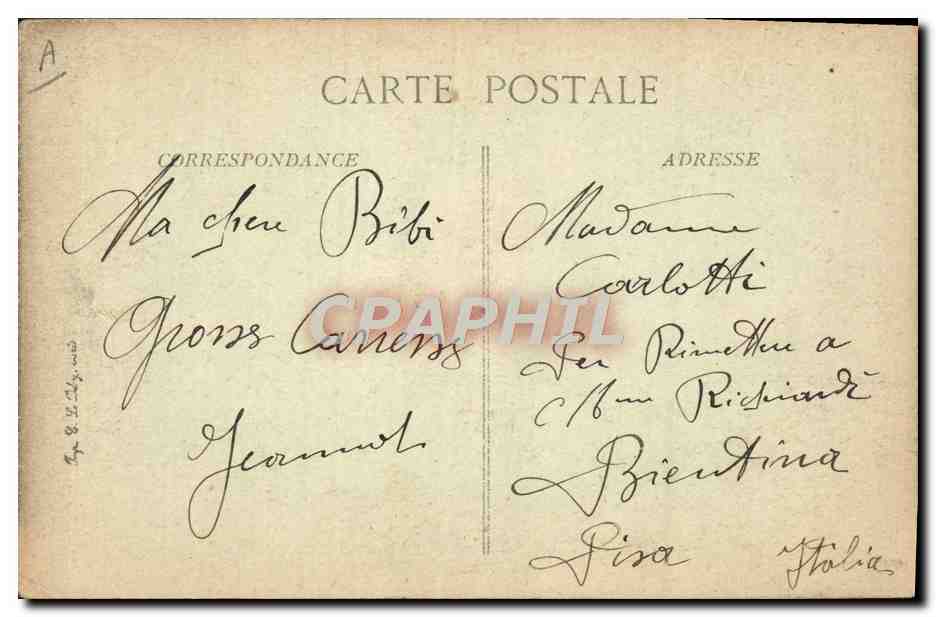 A
CARTE POSTALE
CORRESPONDANCE
Ma chere Bibi
Grosses Caresses
Jeannot
ADRESSE
Madame
Carlotti
Per Rimettere a
Richiardi
Bientina
Pisa Italia
CPAPHIL